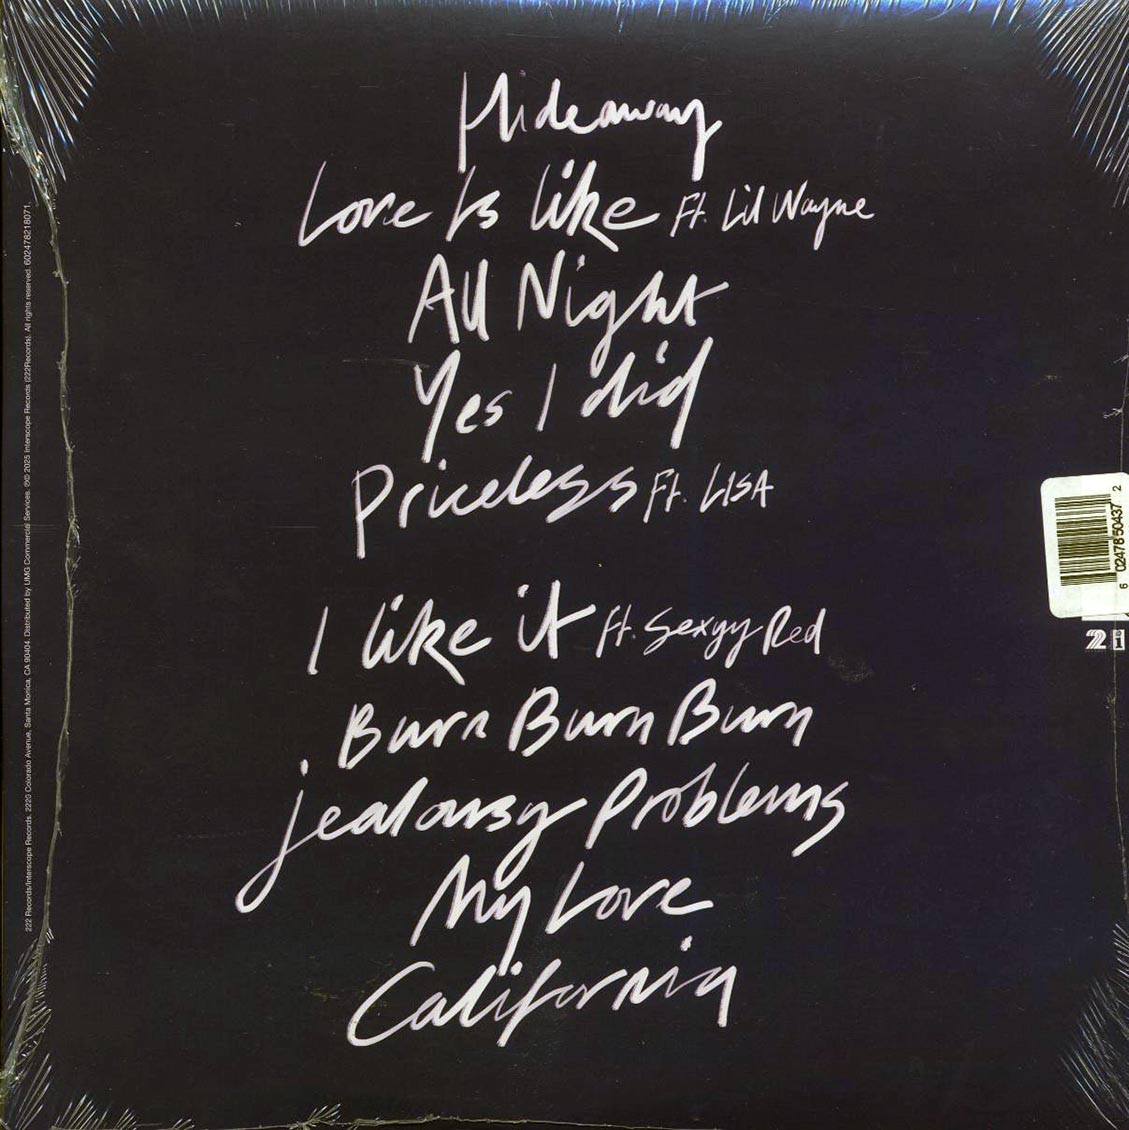 Hideaway
Love Is like Ft. Lil Wayne
All Night
Yes I did
Priceless Ft. LISA
I like it ft. Sexyy Red
Burn Burn Burn
jealousy Problems
My Love
California
222 Records/Interscope Records. 2220 Colorado Avenue, Santa Monica, CA 90404. Distributed by UMG Commercial Services. ℗© 2025 Interscope Records (222Records). All rights reserved. 602478218071.
6 02478 50437 2
222
i